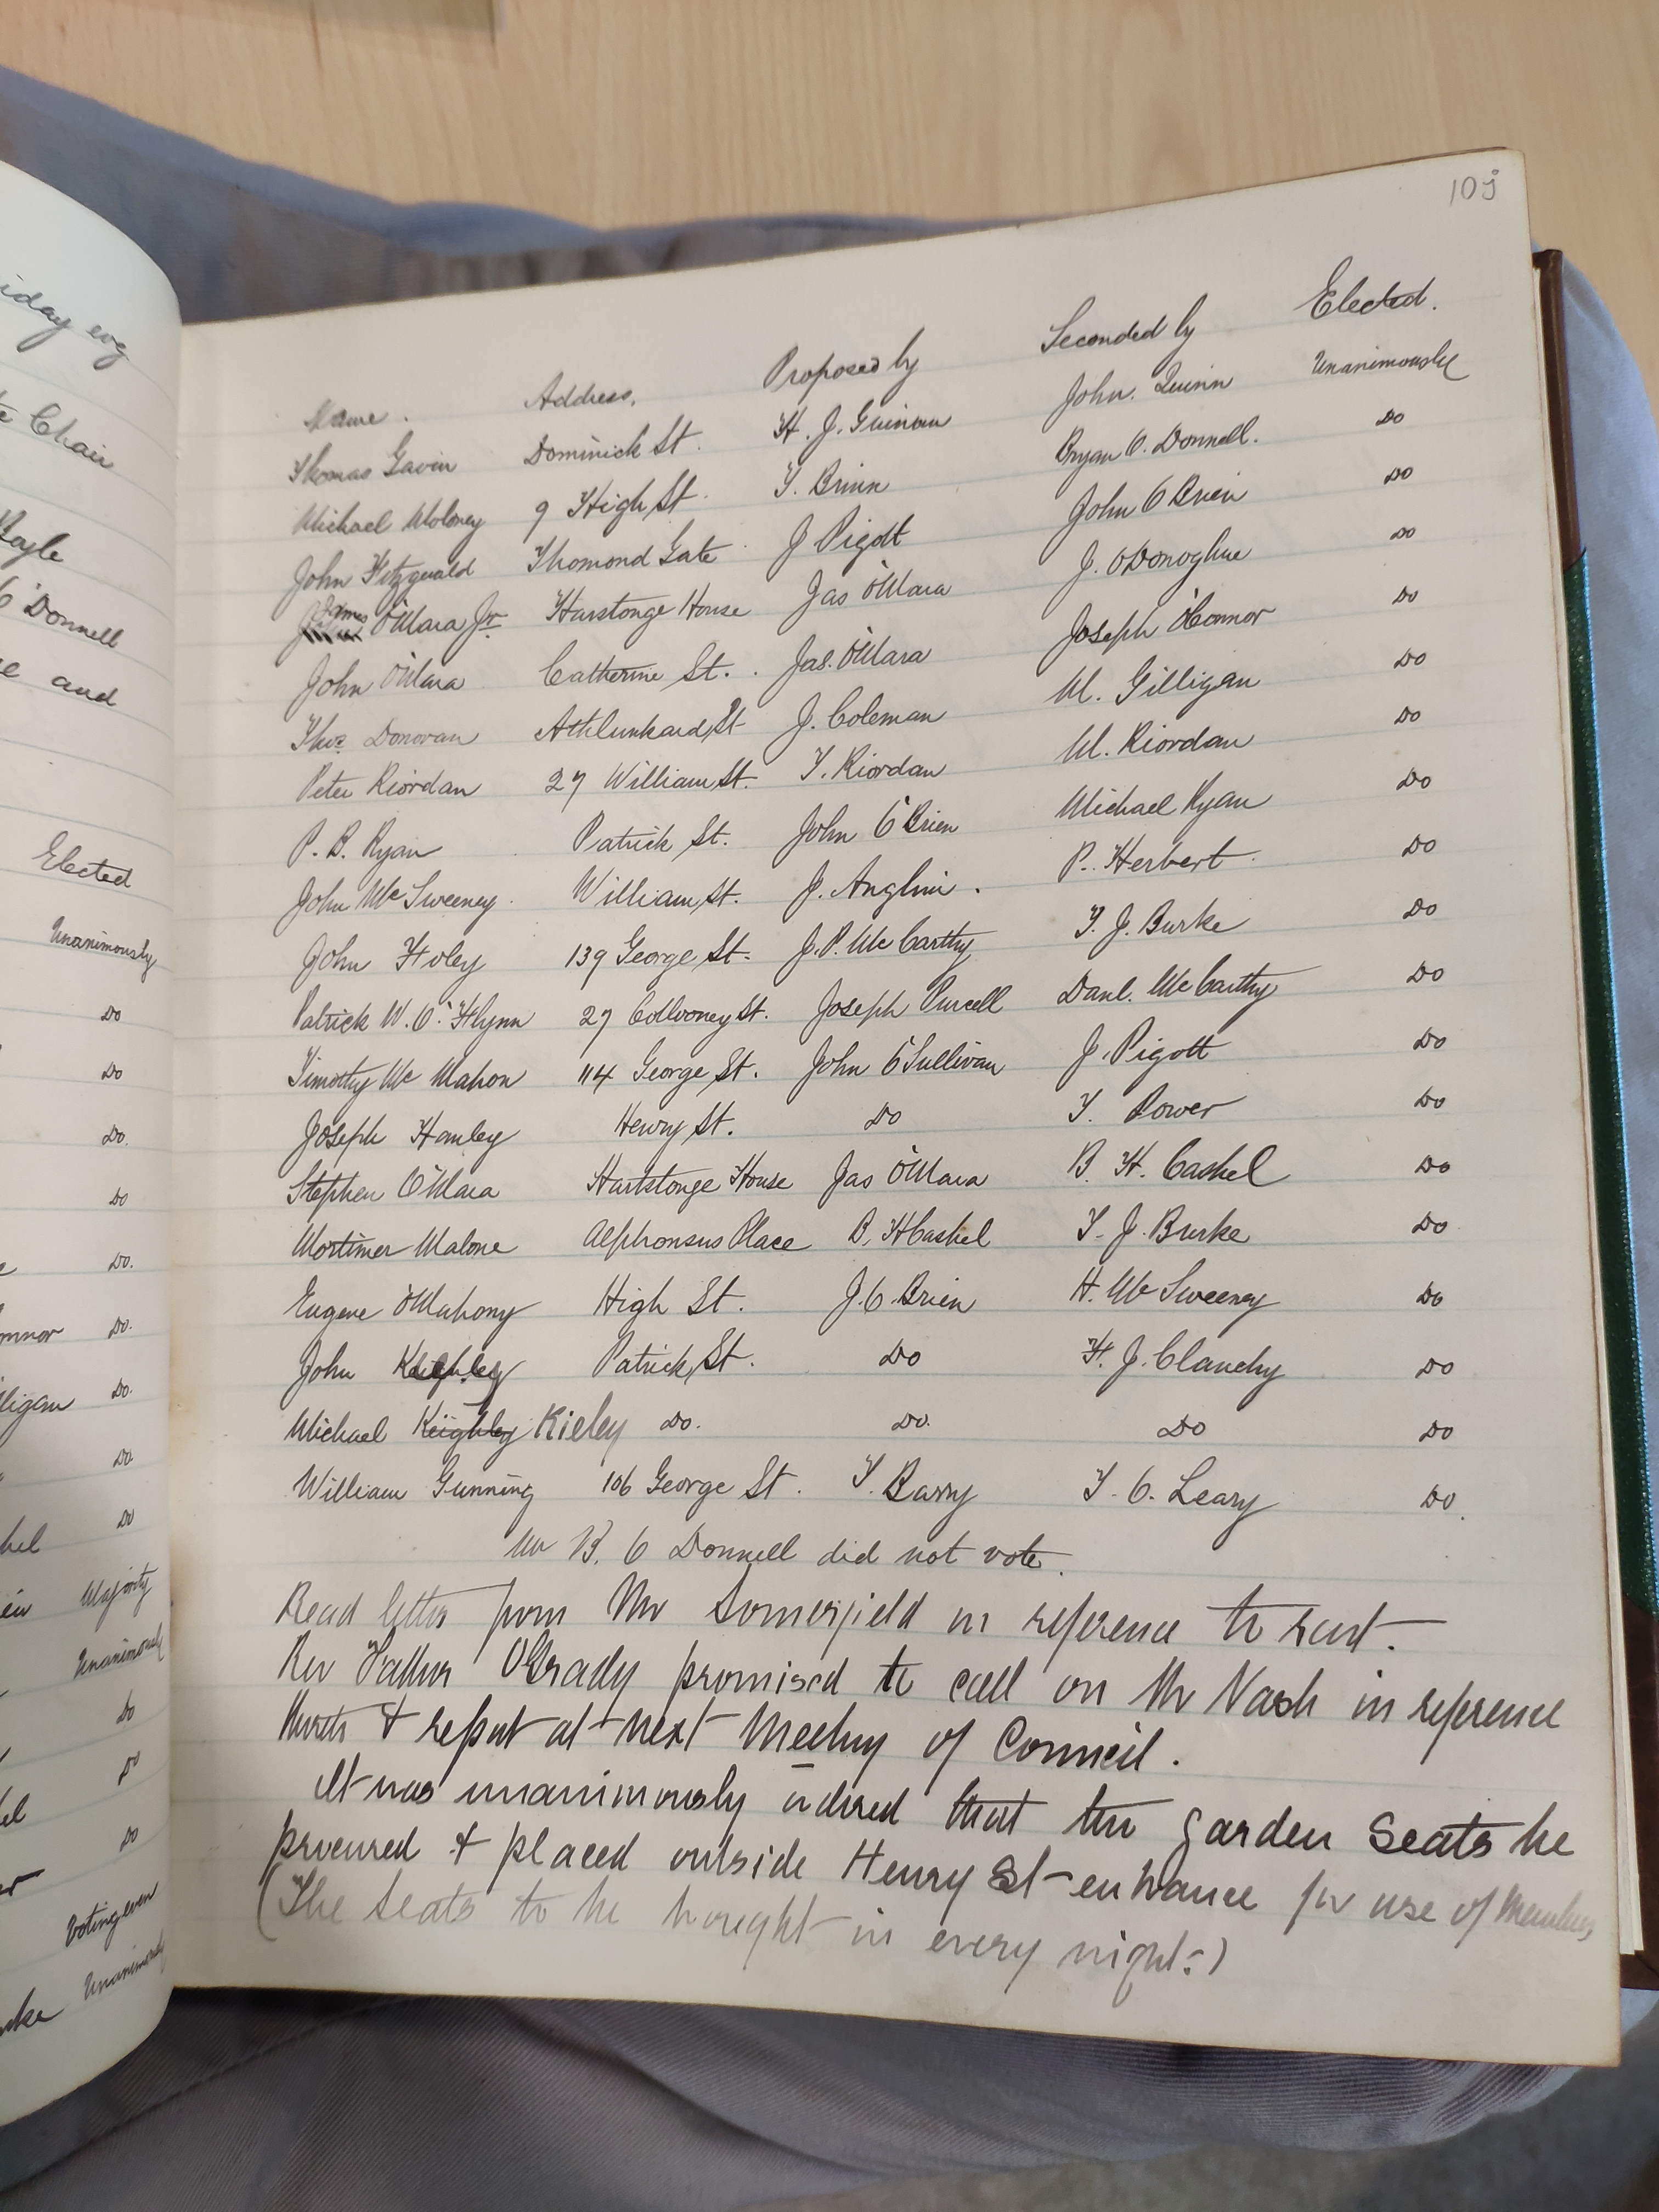 iday evg
Chair
Donnell
and
Elected
Unanimously
Do
Do
Do.
Do
Do.
Do.
Do.
Do
Do
Majority
Unanimously
Do
Do
Do
Voting even
Unanimously
105
Name. Address. Proposed by Seconded by Elected.
Thomas Gavin Dominick St. H. J. Guinan John Quinn Unanimously
Michael Moloney 9 High St. T. Brinn Bryan O. Donnell. Do
John Fitzgerald Thomond Gate J Pigott John O Brien Do
James O'Mara Jr. Harstonge House Jas O'Mara J. O'Donoghue Do
John O'Mara Catherine St. Jas. O'Mara Joseph O'Connor Do
Thos. Donovan Athlunkard St J. Coleman M. Gilligan Do
Peter Riordan 27 William St. T. Riordan M. Riordan Do
P. B. Ryan Patrick St. John O'Brien Michael Ryan Do
John McSweeney William St. J. Anglim. P. Herbert Do
John Foley 139 George St. J. P. McCarthy T. J. Burke Do
Patrick W. O'Flynn 27 Collooney St. Joseph Purcell Danl. McCarthy Do
Timothy McMahon 114 George St. John O'Sullivan J. Pigott Do
Joseph Hanley Henry St. Do T. Power Do
Stephen O'Mara Hartstonge House Jas O'Mara B. H. Cashel Do
Mortimer Malone Alphonsus Place B. H Cashel T. J. Burke Do
Eugene O'Mahony High St. J. O. Brien H. McSweeney Do
John Patrick St. Do H. J. Clanchy Do
Michael Keighley Kieley Do. Do. Do Do
William Gunning 106 George St. T. Barry T. O. Leary Do.
Mr B. O Donnell did not vote.
Read letter from Mr Somerfield in reference to rent.
Rev Father O'Grady promised to call on Mr Nash in reference
thereto & report at next Meeting of Council.
It was unanimously ordered that the garden seats be
procured & placed outside Henry St entrance for use of Members
(The seats to be brought in every night.)